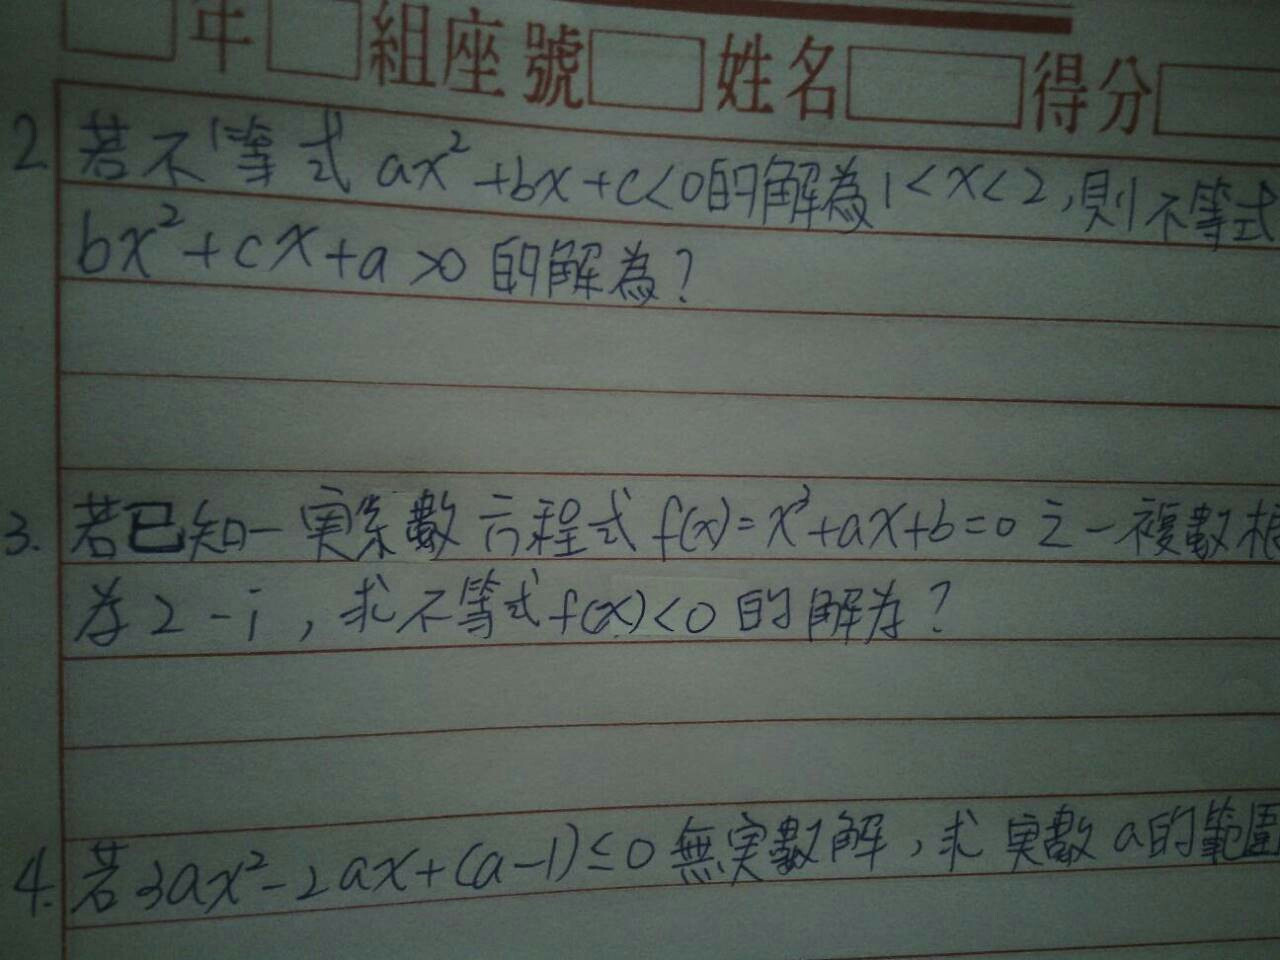 年 組座號 姓名 得分
2. 若不等式 ax²+bx+c<0的解為1<x<2,則不等式
bx²+cx+a>0 的解為?
3. 若已知一実系數方程式 f(x)=x³+ax+b=0 之一複數根
为 2-i, 求不等式f(x)<0 的解为?
4. 若3ax²-2ax+(a-1)≤0 無実數解,求実數 a的範圍